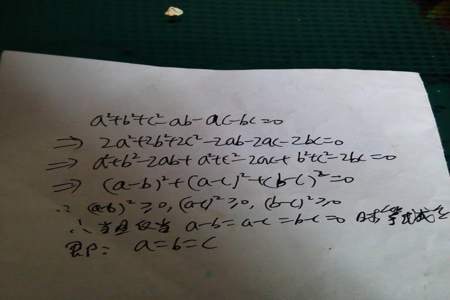 a²+b²+c²-ab-ac-bc=0
⇒ 2a²+2b²+2c²-2ab-2ac-2bc=0
⇒ a²+b²-2ab+a²+c²-2ac+b²+c²-2bc=0
⇒ (a-b)²+(a-c)²+(b-c)²=0
∵ (a-b)²≥0, (a-c)²≥0, (b-c)²≥0
∴ 当且仅当 a-b=a-c=b-c=0 时等式成立
即: a=b=c